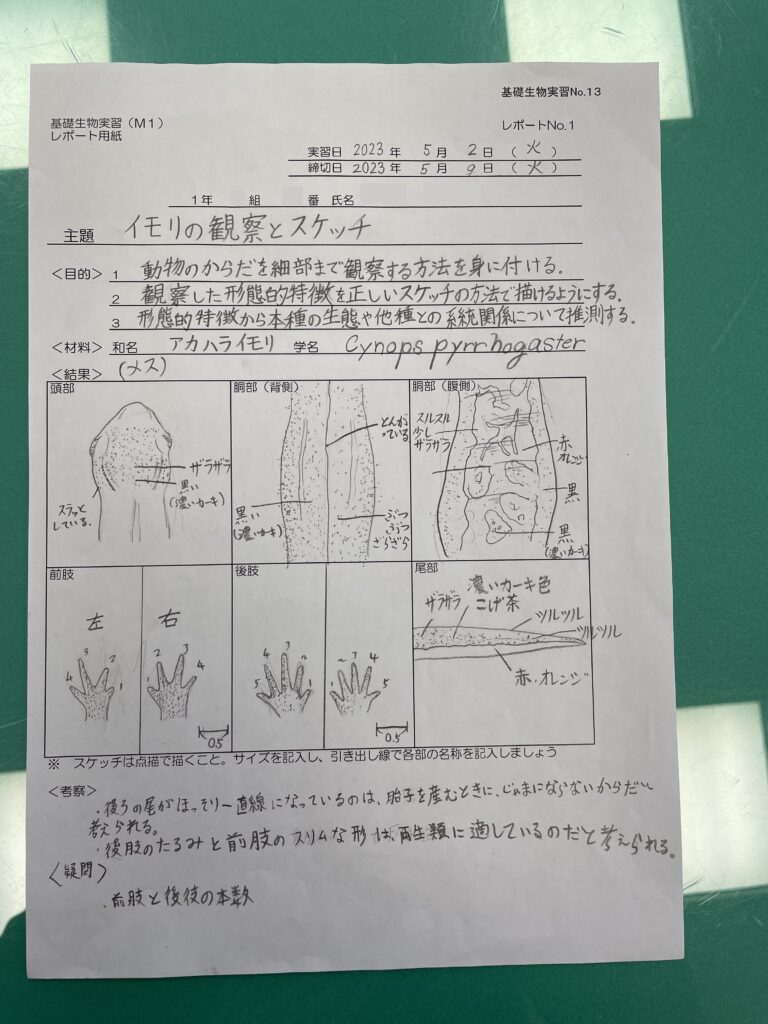 基礎生物実習No.13
基礎生物実習(M1)
レポート用紙
レポートNo.1
実習日 2023 年 5 月 2 日 (火)
締切日 2023 年 5 月 9 日 (火)
1年 組 番 氏名
主題 イモリの観察とスケッチ
<目的> 1 動物のからだを細部まで観察する方法を身に付ける.
2 観察した形態的特徴を正しいスケッチの方法で描けるようにする.
3 形態的特徴から本種の生態や他種との系統関係について推測する.
<材料> 和名 アカハライモリ 学名 Cynops pyrrhogaster
<結果> (メス)
頭部
ザラザラ
黒い
(濃いカーキ)
スラッと
している.
胴部(背側)
とんが
っている
黒い
(濃いカーキ)
ぶつ
ぶつ
ざらざら
胴部(腹側)
スルスル
少し
ザラザラ
赤
オレンジ
黒
黒
(濃いカーキ)
前肢
左 右
4 3 2 1
1 2 3 4
0.5
後肢
5 4 3 2 1
1 2 3 4 5
0.5
尾部
濃いカーキ色
ザラザラ こげ茶
ツルツル
ツルツル
赤・オレンジ
※ スケッチは点描で描くこと。サイズを記入し、引き出し線で各部の名称を記入しましょう
<考察>
・後ろの尾がほっそり一直線になっているのは、胎子を産むときに、じゃまにならないからだと
考えられる。
・後肢のたるみと前肢のスリムな形は、両生類に適しているのだと考えられる。
<疑問>
・前肢と後肢の本数